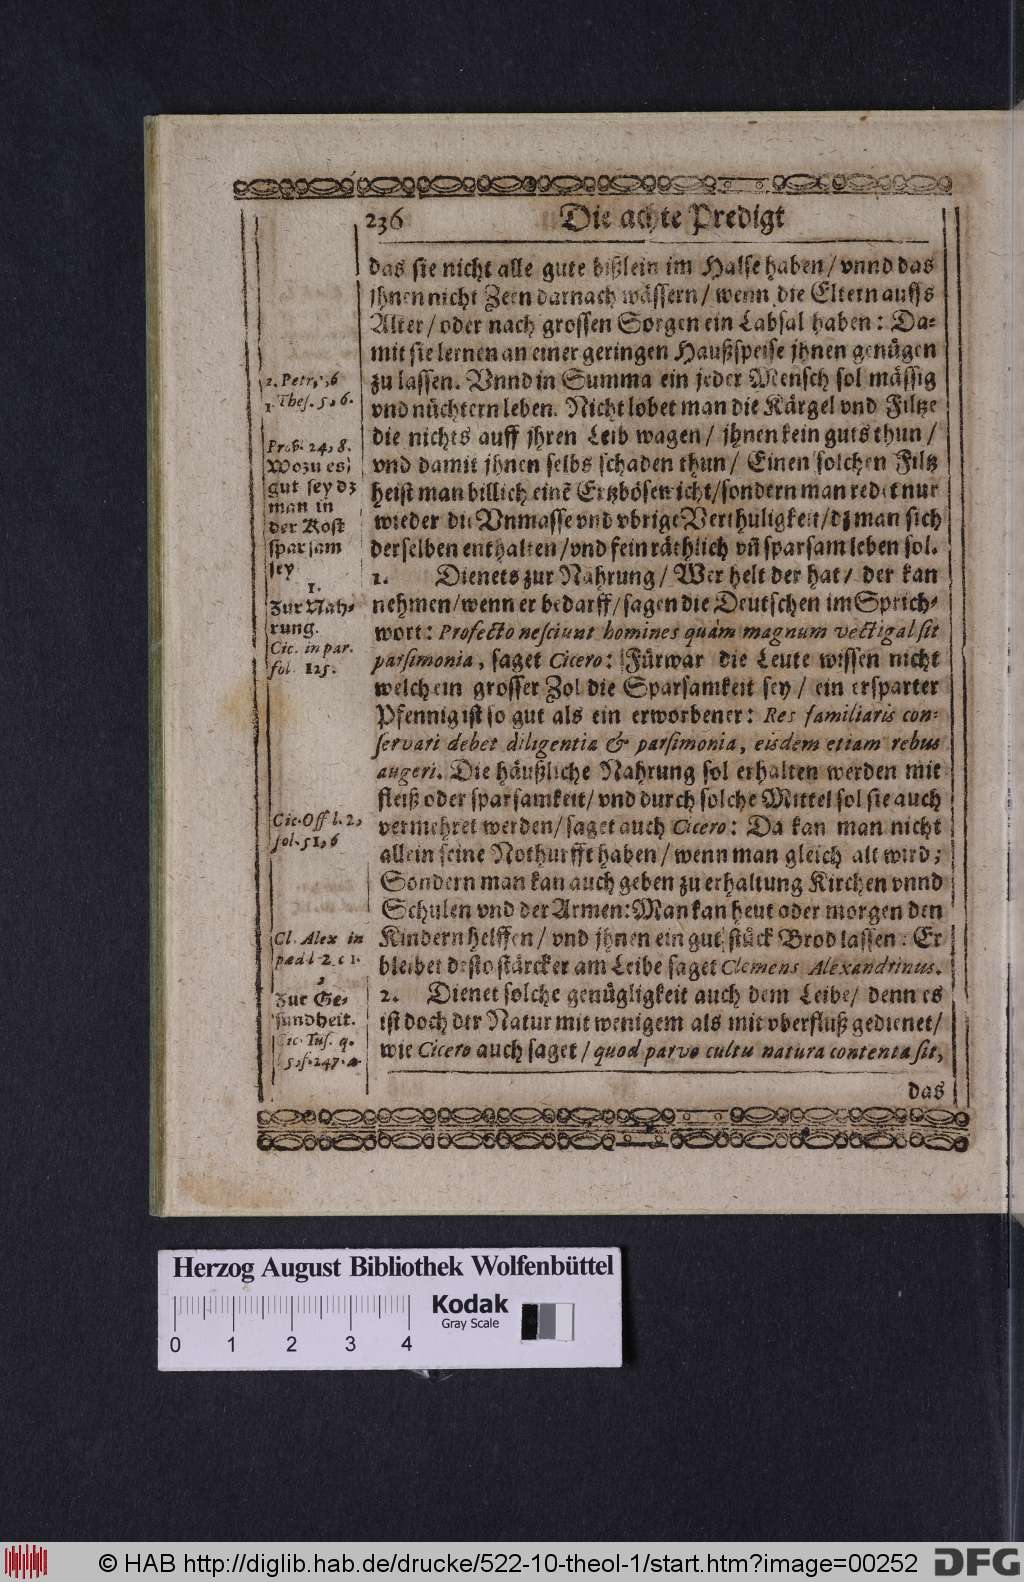 236 Die achte Predigt
das sie nicht alle gute bißlein im Halse haben / vnnd das
jhnen nicht Zeen darnach wässern / wenn die Eltern auffs
Alter / oder nach grossen Sorgen ein Labsal haben: Da-
mit sie lernen an einer geringen Haußspeise jhnen genügen
zu lassen. Vnnd in Summa ein jeder Mensch sol mässig
vnd nüchtern leben. Nicht lobet man die Kärgel vnd Filtze
die nichts auff jhren Leib wagen / jhnen kein guts thun /
vnd damit jhnen selbs schaden thun / Einen solchen Filtz
heist man billich einē Ertzbösewicht / sondern man redet nur
wieder die Vnmasse vnd vbrige Verthuligkeit / dz man sich
derselben enthalten / vnd fein räthlich vñ sparsam leben sol.
1. Dienets zur Nahrung / Wer helt der hat / der kan
nehmen / wenn er bedarff / sagen die Deutschen im Sprich-
wort: Profecto nesciunt homines quàm magnum vectigal sit
parsimonia, saget Cicero: Fürwar die Leute wissen nicht
welch ein grosser Zol die Sparsamkeit sey / ein ersparter
Pfennig ist so gut als ein erworbener: Res familiaris con-
servari debet diligentia & parsimonia, eisdem etiam rebus
augeri. Die häußliche Nahrung sol erhalten werden mit
fleiß oder sparsamkeit / vnd durch solche Mittel sol sie auch
vermehret werden / saget auch Cicero: Da kan man nicht
allein seine Nothurfft haben / wenn man gleich alt wird;
Sondern man kan auch geben zu erhaltung Kirchen vnnd
Schulen vnd der Armen: Man kan heut oder morgen den
Kindern helffen / vnd jhnen ein gut stück Brod lassen: Er
bleibet desto stärcker am Leibe saget Clemens Alexandrinus.
2. Dienet solche genügligkeit auch dem Leibe / denn es
ist doch der Natur mit wenigem als mit vberfluß gedienet /
wie Cicero auch saget / quod parvo cultu natura contenta sit,
das
2. Petr. 1, 6
1. Thes. 5, 6.
Prov. 24, 8.
Wozu es
gut sey dz
man in
der Kost
sparsam
sey
1.
Zur Nah-
rung.
Cic. in par.
fol. 125.
Cic. Off l. 2,
fol. 51, 6
Cl. Alex in
pæd l 2. c 1.
2
Zur Ge-
sundheit.
Cic. Tus. q.
l 5, f. 247. a.
Herzog August Bibliothek Wolfenbüttel
Kodak
Gray Scale
0 1 2 3 4
© HAB http://diglib.hab.de/drucke/522-10-theol-1/start.htm?image=00252
DFG